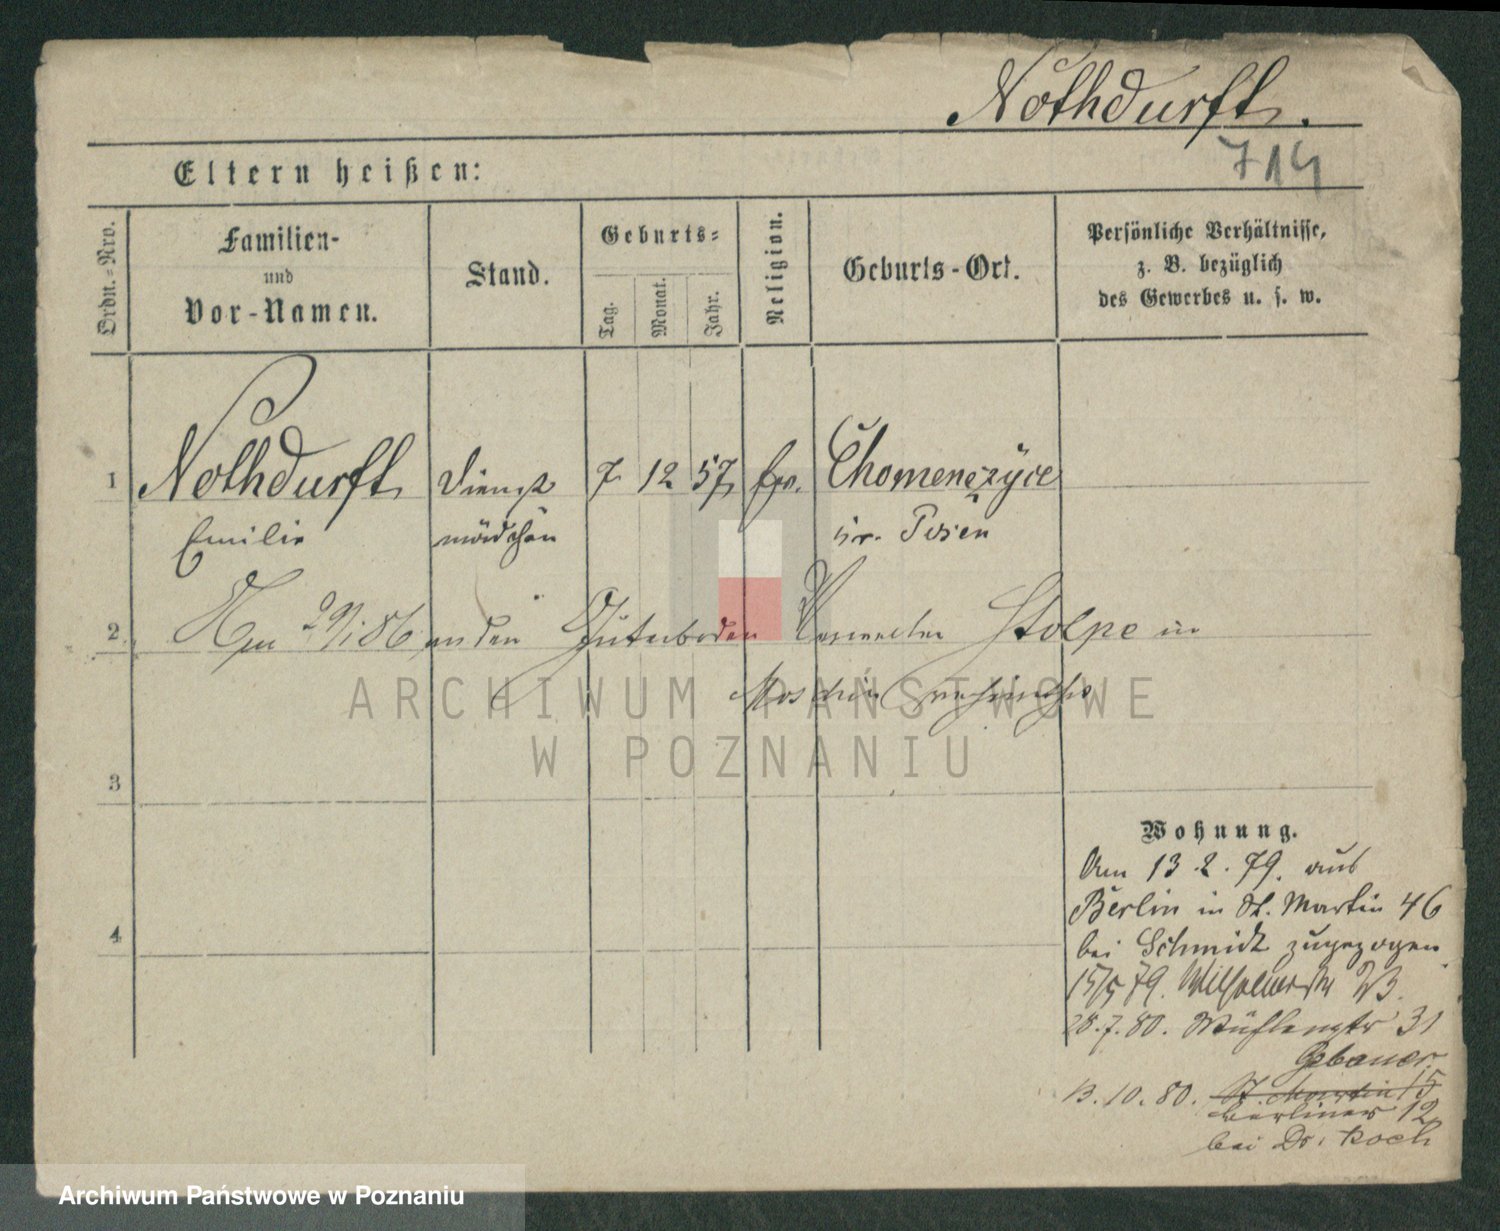 Nothdurft.
714
Eltern heißen:
Ordn.-Nro.
Familien-
und
Vor-Namen.
Stand.
Geburts-
Tag.
Monat.
Jahr.
Religion.
Geburts-Ort.
Persönliche Verhältnisse,
z. B. bezüglich
des Gewerbes u. s. w.
1 Nothdurft Dienst 7 12 57 Chomenczyce
Emilie mädchen Kr. Posen
2 86 an den Stolpe in
Moschin
ARCHIWUM PAŃSTWOWE
W POZNANIU
3
Wohnung.
Am 13.2.79. aus
Berlin in St. Martin 46
4
bei Schmidt zugezogen
15/5 79.
28.7.80. Mühlenstr 31
Gebauer.
13.10.80. St. Martin 15
Berliner 12
bei Dr. Koch
Archiwum Państwowe w Poznaniu